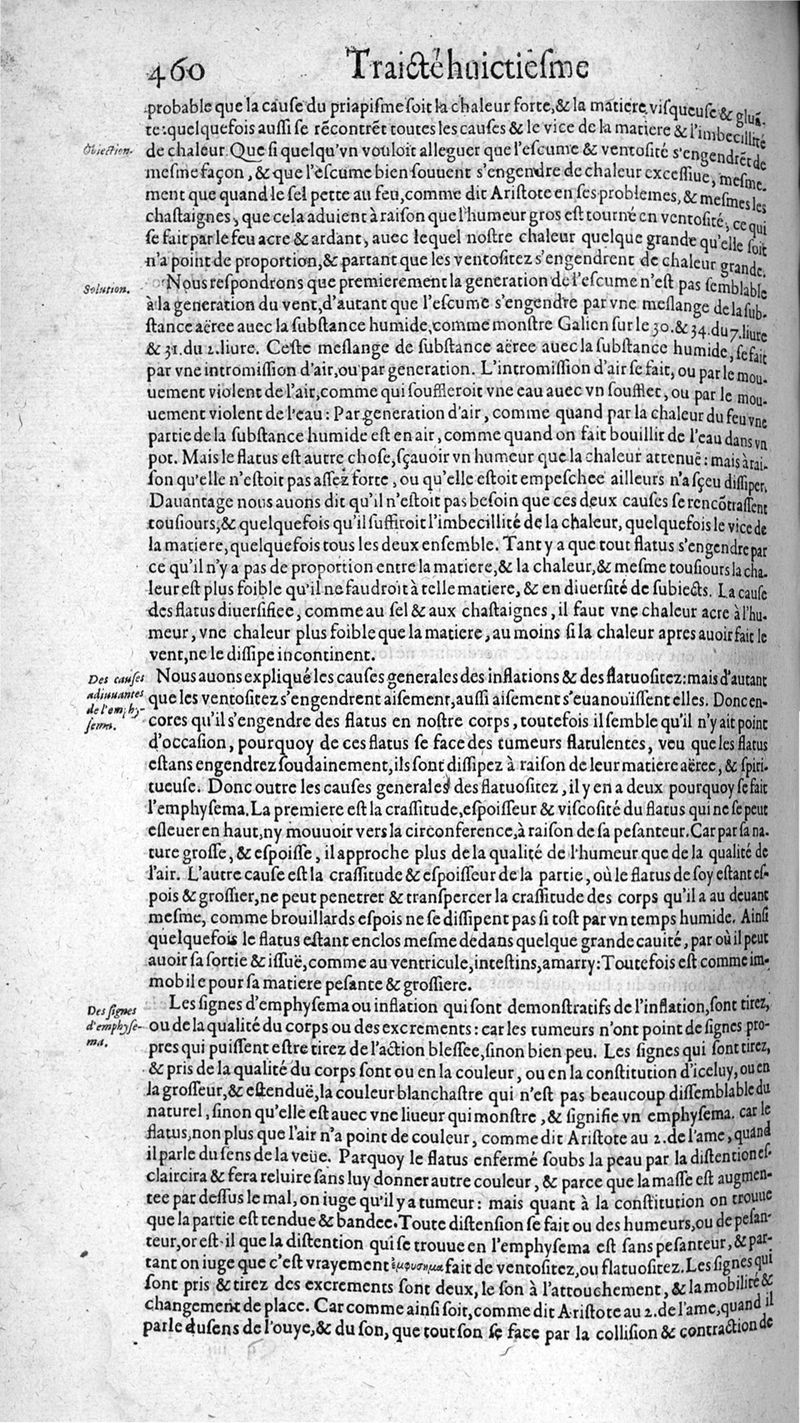 460 Traicté huictiesme
probable que la cause du priapisme soit la chaleur forte, & la matiere visqueuse & gluā-
te: quelquefois aussi se rēcontrēt toutes les causes & le vice de la matiere & l'imbecillité
Obiection.
de chaleur. Que si quelqu'vn vouloit alleguer que l'escume & ventosité s'engendrēt de
mesme façon, & que l'escume bien souuent s'engendre de chaleur excessiue, mesme-
ment que quand le sel pette au feu, comme dit Aristote en ses problemes, & mesmes les
chastaignes, que cela aduient à raison que l'humeur gros est tourné en ventosité, ce qui
se fait par le feu acre & ardant, auec lequel nostre chaleur quelque grande qu'elle soit
n'a point de proportion, & partant que les ventositez s'engendrent de chaleur grande.
Solution.
Nous respondrons que premierement la generation de l'escume n'est pas semblable
à la generation du vent, d'autant que l'escume s'engendre par vne meslange de la sub-
stance aëree auec la substance humide, comme monstre Galien sur le 30. & 34. du 7. liure
& 31. du 2. liure. Ceste meslange de substance aëree auec la substance humide, se fait
par vne intromission d'air, ou par generation. L'intromission d'air se fait, ou par le mou-
uement violent de l'air, comme qui souffleroit vne eau auec vn soufflet, ou par le mou-
uement violent de l'eau: Par generation d'air, comme quand par la chaleur du feu vne
partie de la substance humide est en air, comme quand on fait bouillir de l'eau dans vn
pot. Mais le flatus est autre chose, sçauoir vn humeur que la chaleur attenuë: mais à rai-
son qu'elle n'estoit pas assez forte, ou qu'elle estoit empeschee ailleurs n'a sçeu dissiper.
Dauantage nous auons dit qu'il n'estoit pas besoin que ces deux causes se rencōtrassent
tousiours, & quelquefois qu'il suffiroit l'imbecillité de la chaleur, quelquefois le vice de
la matiere, quelquefois tous les deux ensemble. Tant y a que tout flatus s'engendre par
ce qu'il n'y a pas de proportion entre la matiere, & la chaleur, & mesme tousiours la cha-
leur est plus foible qu'il ne faudroit à telle matiere, & en diuersité de subiects. La cause
des flatus diuersifiee, comme au sel & aux chastaignes, il faut vne chaleur acre à l'hu-
meur, vne chaleur plus foible que la matiere, au moins si la chaleur apres auoir fait le
vent, ne le dissipe incontinent.
Des causes
adiuuantes
de l'emphy-
sema.
Nous auons expliqué les causes generales des inflations & des flatuositez: mais d'autant
que les ventositez s'engendrent aisement, aussi aisement s'euanouïssent elles. Donc en-
cores qu'il s'engendre des flatus en nostre corps, toutefois il semble qu'il n'y ait point
d'occasion, pourquoy de ces flatus se face des tumeurs flatulentes, veu que les flatus
estans engendrez soudainement, ils sont dissipez à raison de leur matiere aëree, & spiri-
tueuse. Donc outre les causes generales des flatuositez, il y en a deux pourquoy se fait
l'emphysema. La premiere est la crassitude, espoisseur & viscosité du flatus qui ne se peut
esleuer en haut, ny mouuoir vers la circonference, à raison de sa pesanteur. Car par sa na-
ture grosse, & espoisse, il approche plus de la qualité de l'humeur que de la qualité de
l'air. L'autre cause est la crassitude & espoisseur de la partie, où le flatus de soy estant es-
pois & grossier, ne peut penetrer & transpercer la crassitude des corps qu'il a au deuant
mesme, comme brouillards espois ne se dissipent pas si tost par vn temps humide. Ainsi
quelquefois le flatus estant enclos mesme dedans quelque grande cauité, par où il peut
auoir sa sortie & issuë, comme au ventricule, intestins, amarry: Toutefois est comme im-
mobile pour sa matiere pesante & grossiere.
Des signes
d'emphyse-
ma.
Les signes d'emphysema ou inflation qui sont demonstratifs de l'inflation, sont tirez,
ou de la qualité du corps ou des excrements: car les tumeurs n'ont point de signes pro-
pres qui puissent estre tirez de l'action blessee, sinon bien peu. Les signes qui sont tirez,
& pris de la qualité du corps sont ou en la couleur, ou en la constitution d'iceluy, ou en
la grosseur, & estenduë, la couleur blanchastre qui n'est pas beaucoup dissemblable du
naturel, sinon qu'elle est auec vne liueur qui monstre, & signifie vn emphysema. car le
flatus, non plus que l'air n'a point de couleur, comme dit Aristote au 2. de l'ame, quand
il parle du sens de la veüe. Parquoy le flatus enfermé soubs la peau par la distention es-
claircira & fera reluire sans luy donner autre couleur, & parce que la masse est augmen-
tee par dessus le mal, on iuge qu'il y a tumeur: mais quant à la constitution on trouue
que la partie est tendue & bandee. Toute distension se fait ou des humeurs, ou de pesan-
teur, or est-il que la distention qui se trouue en l'emphysema est sans pesanteur, & par-
tant on iuge que c'est vrayement ἐμφυσημα fait de ventositez, ou flatuositez. Les signes qui
sont pris & tirez des excrements sont deux, le son à l'attouchement, & la mobilité &
changement de place. Car comme ainsi soit, comme dit Aristote au 2. de l'ame, quand il
parle du sens de l'ouye, & du son, que tout son se face par la collision & contraction de